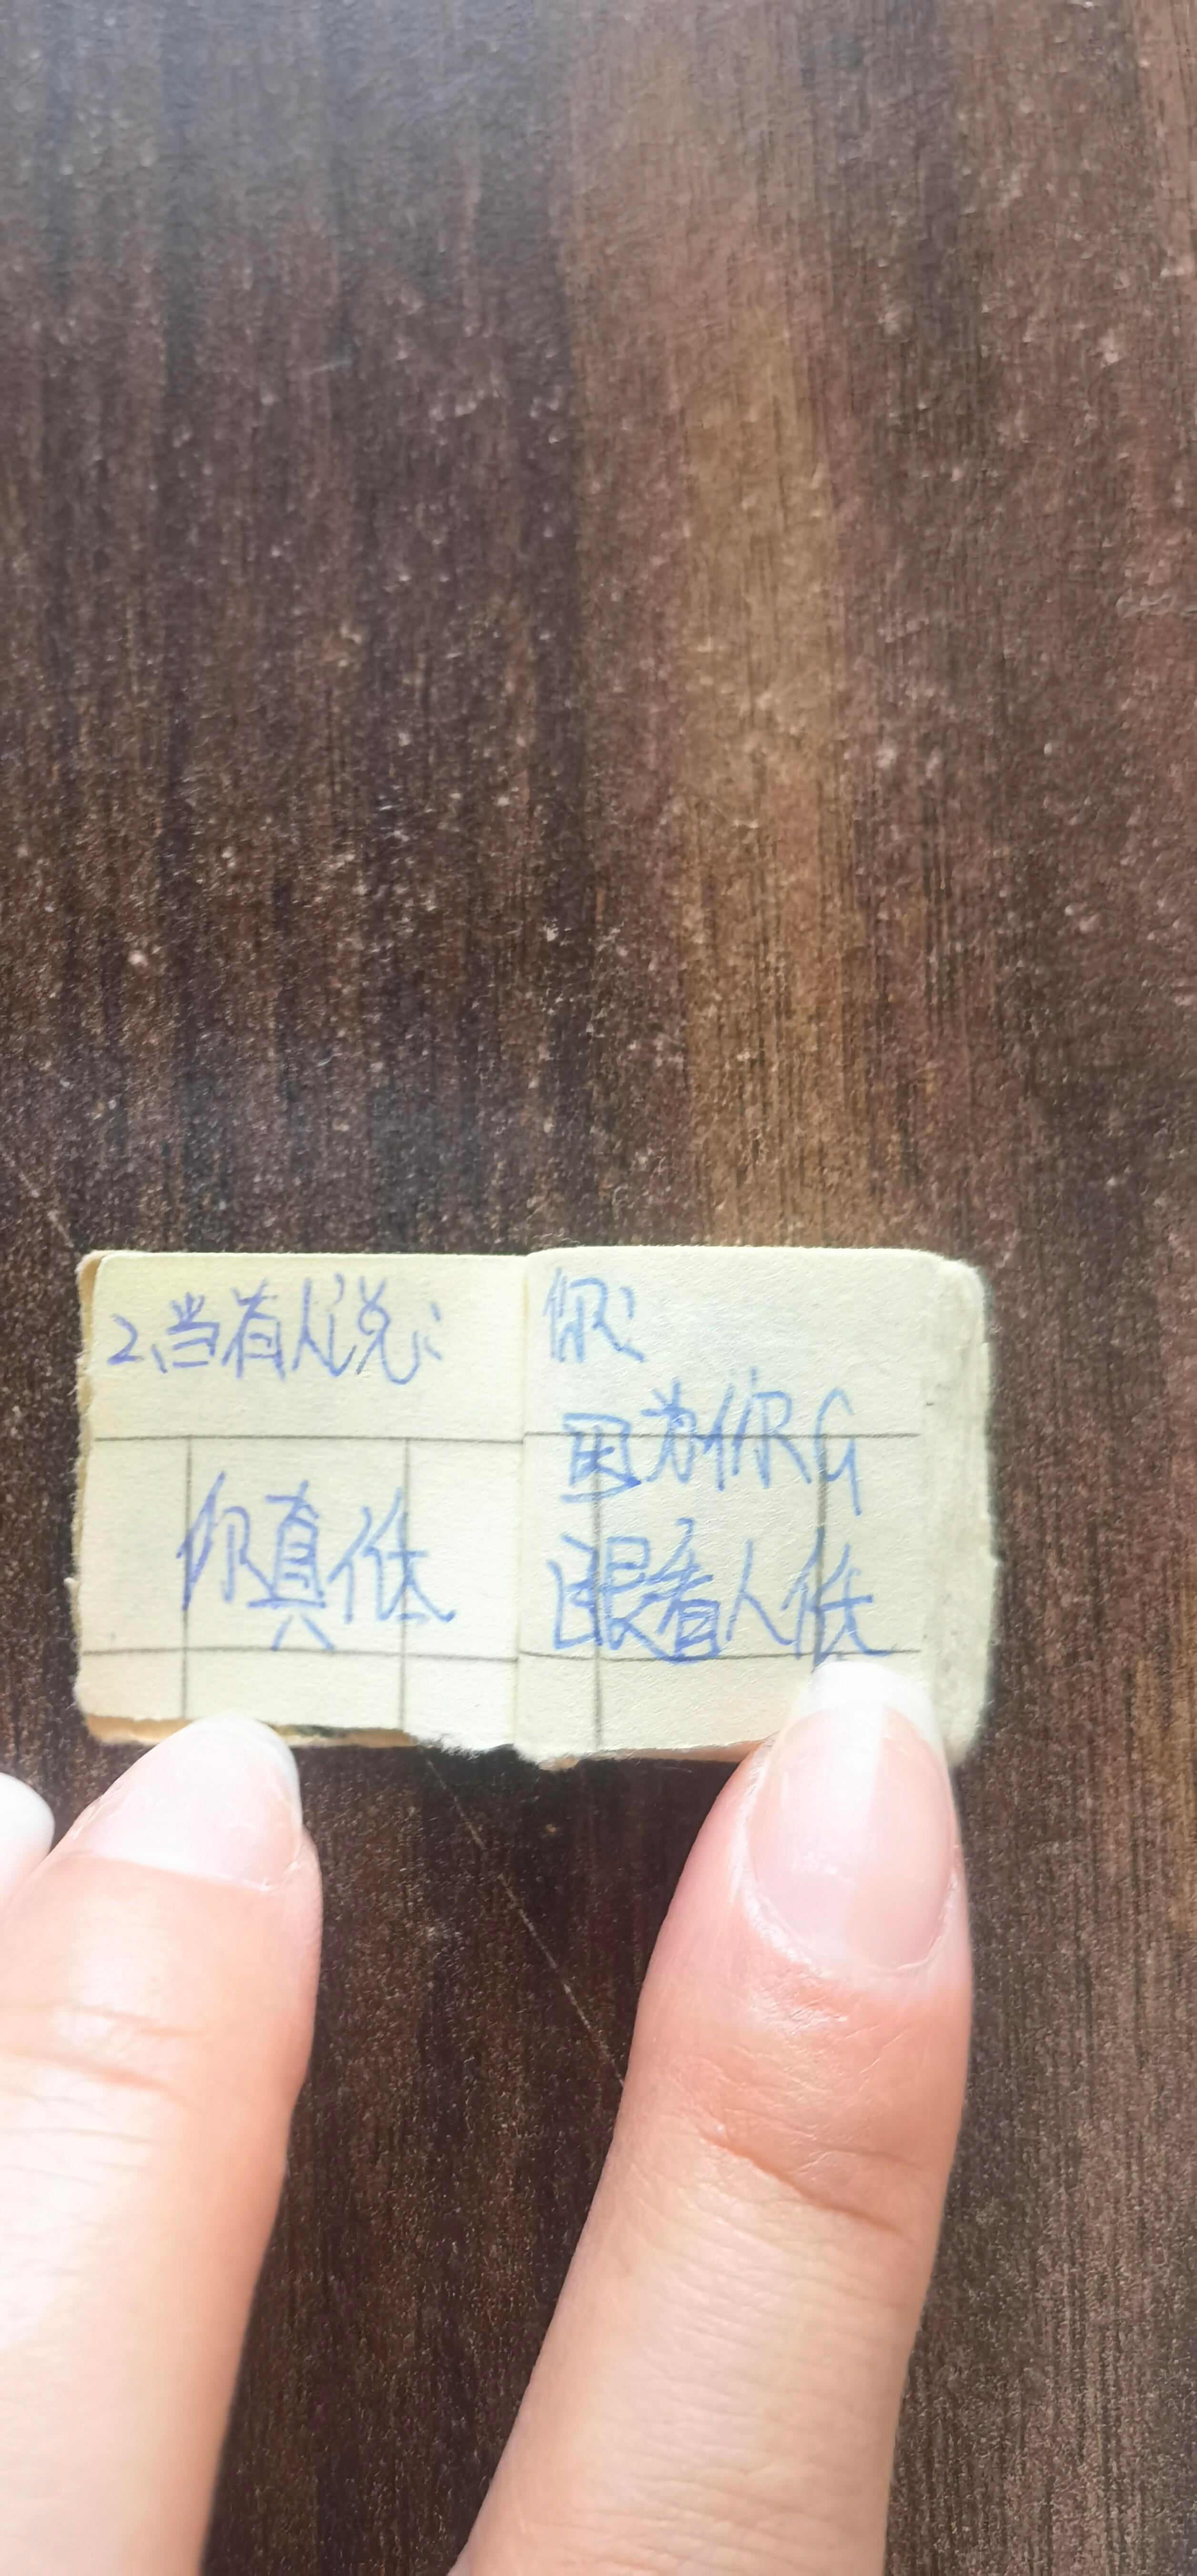 2、当有人说：
你真低
你：
因为你G
眼看人低